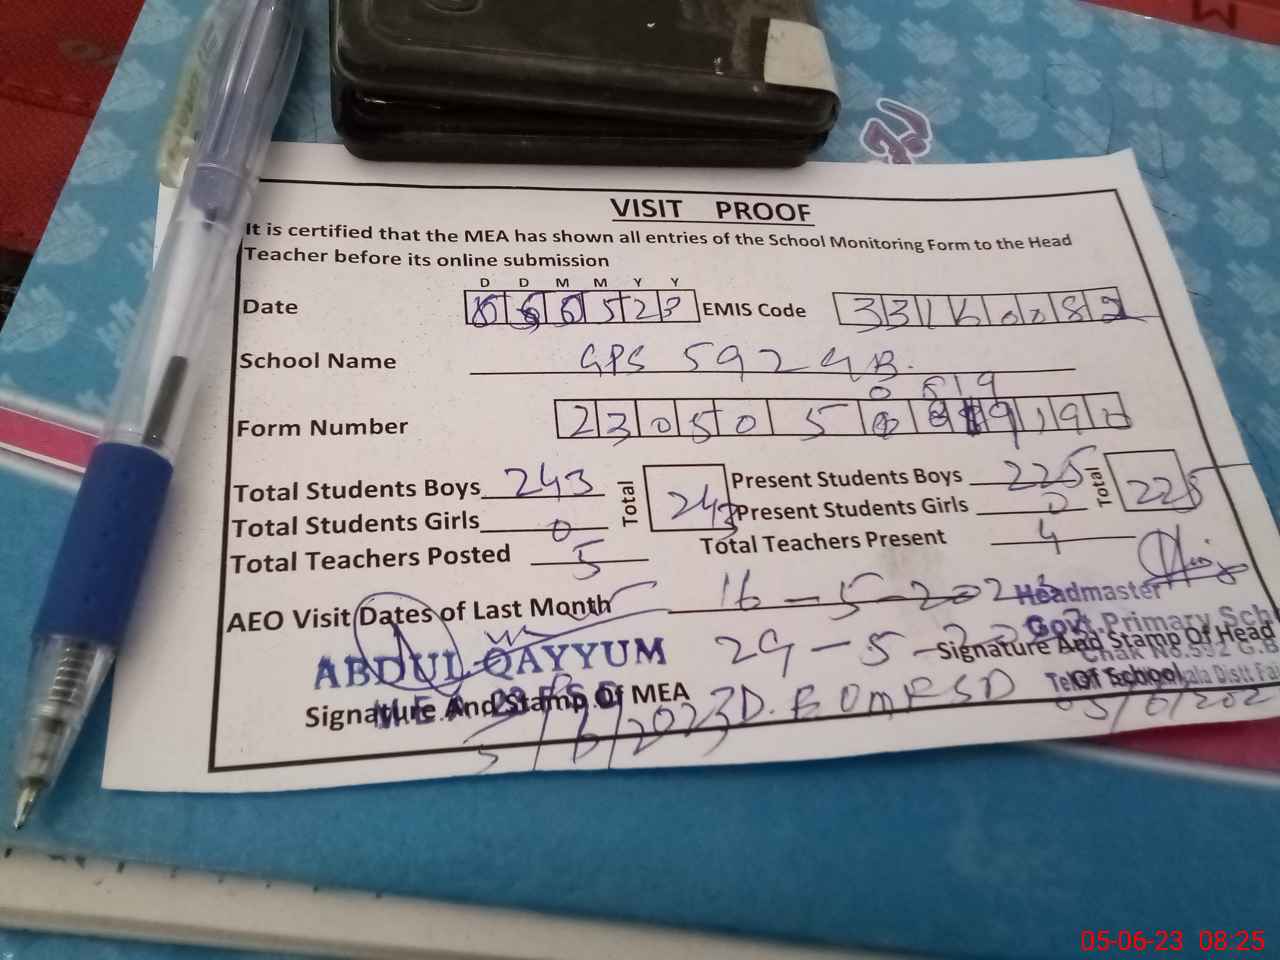 VISIT PROOF
It is certified that the MEA has shown all entries of the School Monitoring Form to the Head
Teacher before its online submission
D D M M Y Y
Date 523 EMIS Code
School Name GPS 592 GB.
0 8 1 9
Form Number 230505
Total Students Boys 243 Total 243 Present Students Boys 225 Total 225
Total Students Girls 0 Present Students Girls 0
Total Teachers Posted 5 Total Teachers Present 4
AEO Visit Dates of Last Month 16-5-2023
Headmaster
Govt. Primary Sch
Chak No.592 G.B
29-5-2023
ABDUL QAYYUM
Signature And Stamp Of Head
Of School
Signature And Stamp Of MEA
5/6/2023
05/6/202
05-06-23 08:25